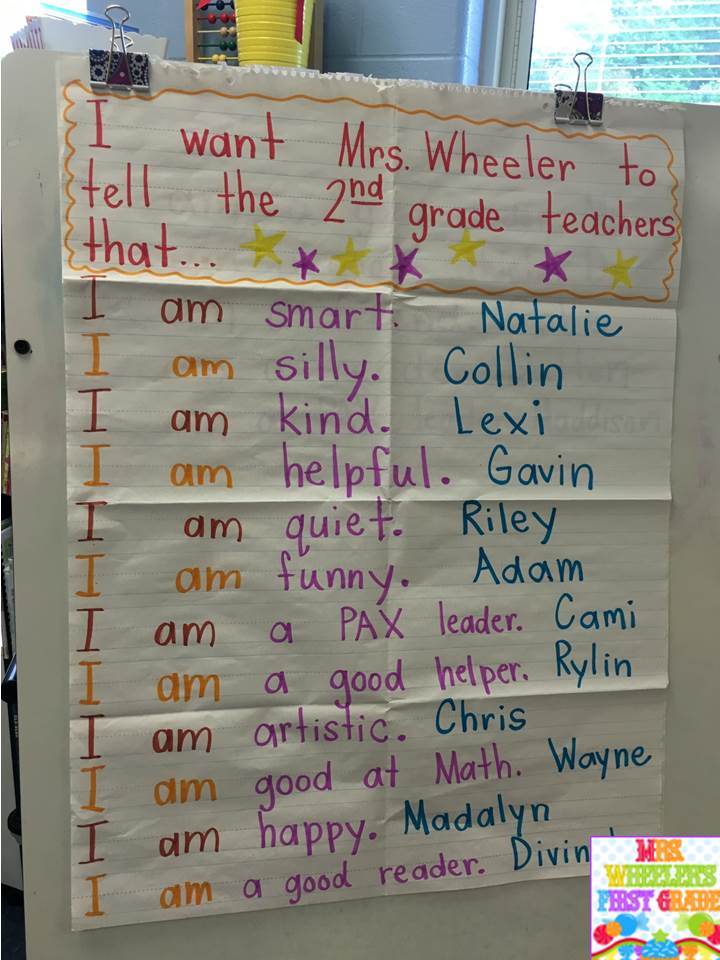 I want Mrs. Wheeler to
tell the 2nd grade teachers
that...
I am smart. Natalie
I am silly. Collin
I am kind. Lexi
I am helpful. Gavin
I am quiet. Riley
I am funny. Adam
I am a PAX leader. Cami
I am a good helper. Rylin
I am artistic. Chris
I am good at Math. Wayne
I am happy. Madalyn
I am a good reader.
MRS.
WHEELER'S
FIRST GRADE